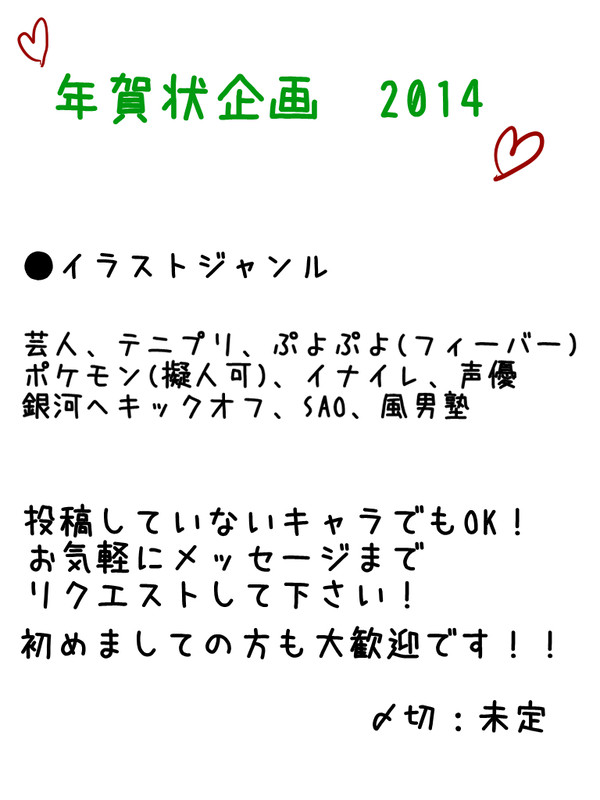 年賀状企画　2014
●イラストジャンル
芸人、テニプリ、ぷよぷよ(フィーバー)
ポケモン(擬人可)、イナイレ、声優
銀河へキックオフ、SAO、風男塾
投稿していないキャラでもOK！
お気軽にメッセージまで
リクエストして下さい！
初めましての方も大歓迎です！！
〆切：未定